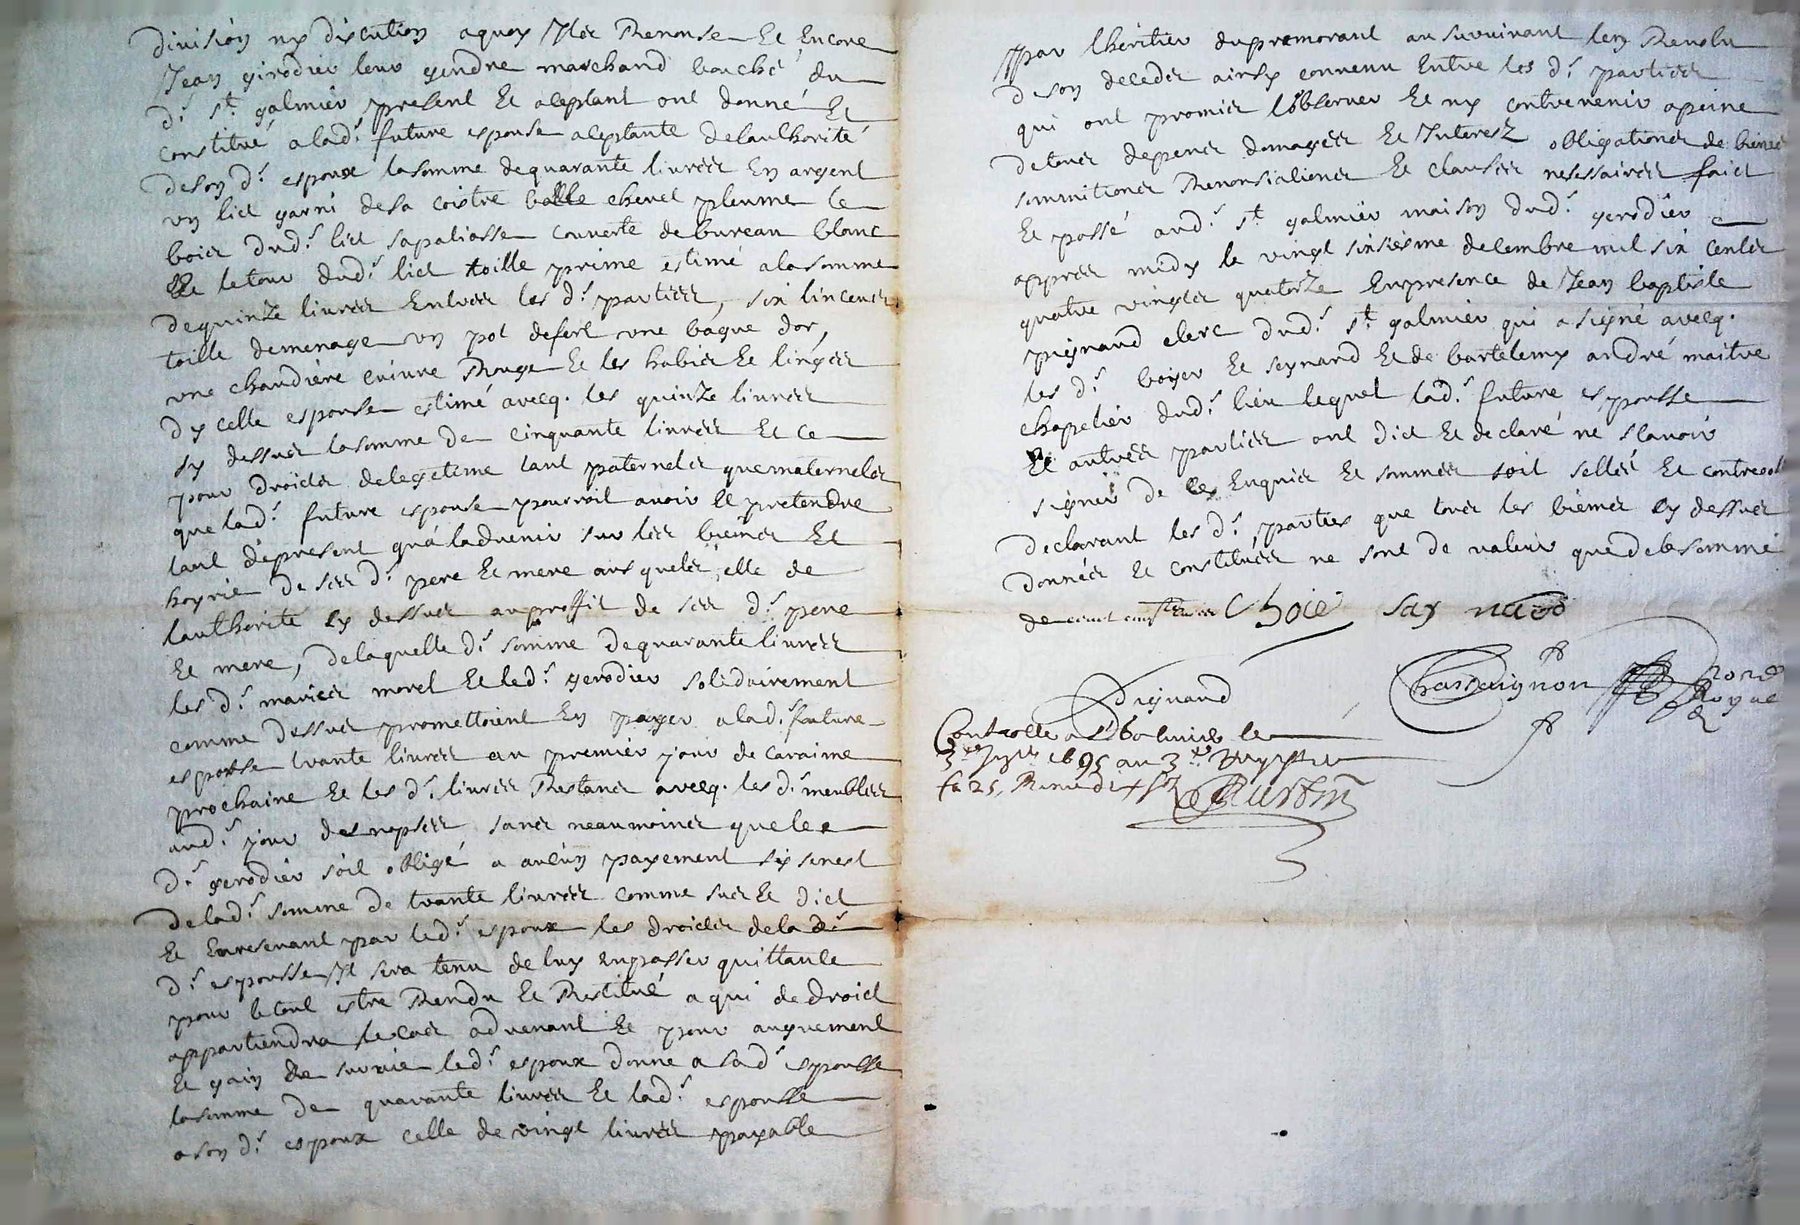 division ny discution a quoy Ils Renonse Et Encore
Jean girodier leur gendre marchand bouché du
d.t s.t galmier present Et aceptant ont donné Et
constitué a lad.t future espouse aceptante de lauthorité
de son d.t espoux la somme de quarante livres En argent
un lict garni de sa coistre balle chevet pleume le
bois dud.t lict sa paliasse couverte de bureau blanc
Et le tour dud.t lict toille prime estimé a la somme
de quinze livres Entres les d.t parties, six linceuls
toille de menage un pot de fert une bague dor,
une chaudiere cuivre Rouge Et les habis Et linges
dy celle espouse estimé avecq. les quinze livres
sy dessus la somme de cinquante livres Et ce
pour droicts de legetime tant paternels que maternels
que lad.t future espouse pourroit avoir Et pretendre
tant de present quá ladvenir sur les biens Et
hoyrie de ses d.t pere Et mere ausquels, elle de
lauthorite sy dessus au proffit de ses d.t pere
Et mere, de laquelle d.t somme de quarante livres
les d.t maries morel Et led.t gerodier solidairement
comme dessus promettoient En payer a lad.t future
espousse trante livres au premier jour de caraime
prochaine Et les d.t livres Restans avecq. les d.t meubles
aud.t jour des nopses sans neaumoins que le
d.t gerodier soit obligé a aulcun payement sy senest
de lad.t somme de trante livres comme sus Et dict
Et En resevant par led.t espoux les droicts de la de.t
d.t espousse Il sera tenu de luy En passer quittance
pour le tout estre Rendu Et Restitué a qui de droict
appartiendra le cas advenant Et pour augmement
Et gain de survie led.t espoux donne a sad.t espousse
la somme de quarante livres Et lad.t espousse
a son d.t espoux celle de vingt livres payable
par lheritier du premorant au survivant len Revolu
de son deceds ainsy convenu Entre les d.t parties
qui ont promis lobserver Et ny contrevenir a peine
de tous depens domages Et Interest obligations de biens
sommitions Renonsiations Et clauses nesessaires faict
Et passé aud.t s.t galmier maison dud.t gerodier
appres midy le vingt sixiesme decembre mil six cents
quatre vingts quatorze En presence de Jean baptiste
pignard clerc dud.t s.t galmier qui a signé avecq.
les d.t boyer Et seynard Et de bartelemy andré maitre
chapelier dud.t lieu lequel lad.t future espousse
Et autres parties ont dict Et declaré ne scavoir
signer de ce Enquis Et sommes soit sellér Et contreolé
declarant les d.t parties que tous les biens sy dessus
donnés Et constitués ne sont de valeur que de la somme
de cent
pignard Chassaignon
Controllé a S.t Galmier le
1695
fo 25,